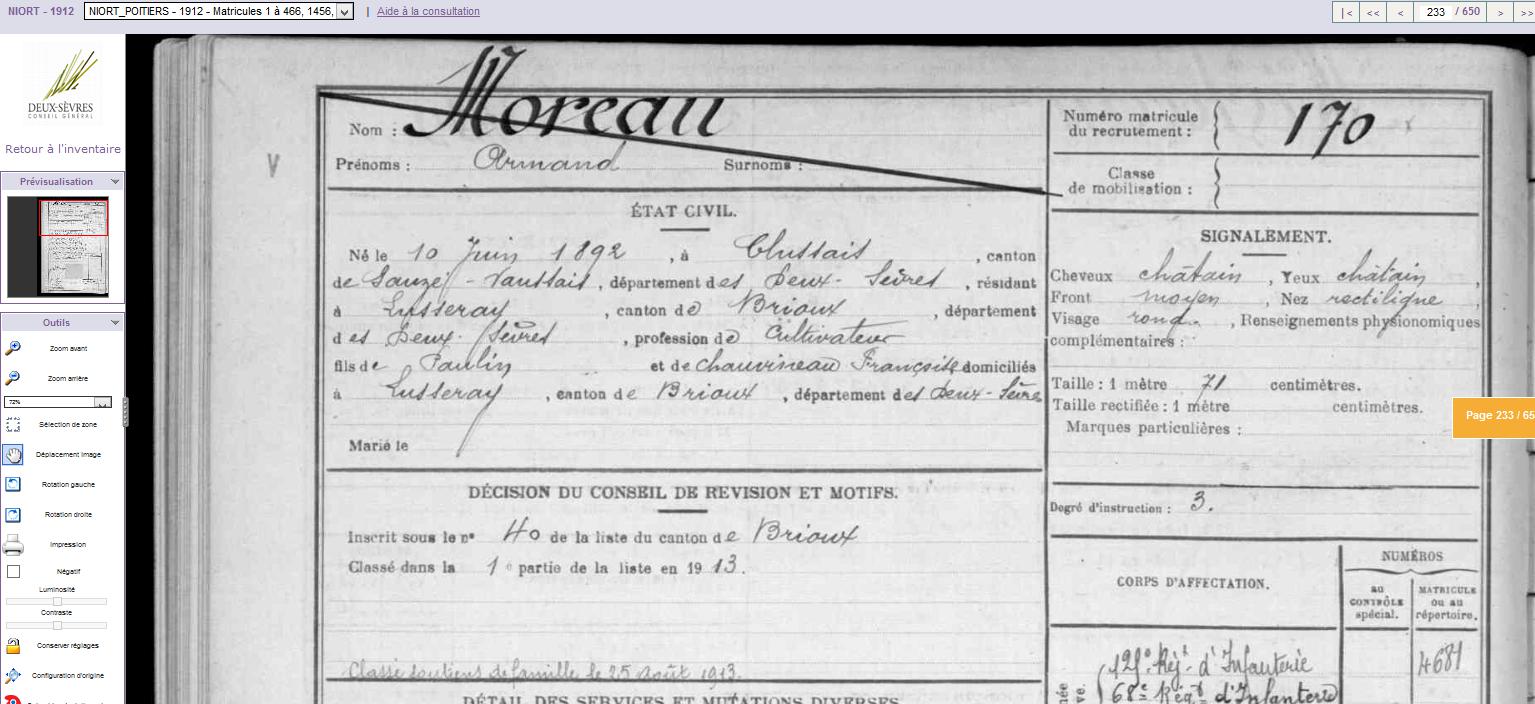 NIORT - 1912 NIORT_POITIERS - 1912 - Matricules 1 à 466, 1456, | Aide à la consultation |< << < 233 / 650 > >>
DEUX-SÈVRES
CONSEIL GÉNÉRAL
Retour à l'inventaire
Prévisualisation
Outils
Zoom avant
Zoom arrière
72%
Sélection de zone
Déplacement image
Rotation gauche
Rotation droite
Impression
Négatif
Luminosité
Contraste
Conserver réglages
Configuration d'origine
Nom : Moreau
Prénoms : Armand Surnoms :
V
Numéro matricule
du recrutement : 170
Classe
de mobilisation :
ÉTAT CIVIL.
Né le 10 Juin 1892, à Clussais, canton
de Sauzé-Vaussais, département des Deux-Sèvres, résidant
à Lusseray, canton de Brioux, département
des Deux-Sèvres, profession de Cultivateur
fils de Paulin et de Chauvineau Françoise domiciliés
à Lusseray, canton de Brioux, département des Deux-Sèvres
Marié le
SIGNALEMENT.
Cheveux châtain, Yeux châtain,
Front moyen, Nez rectiligne,
Visage rond, Renseignements physionomiques
complémentaires :
Taille : 1 mètre 71 centimètres.
Taille rectifiée : 1 mètre centimètres.
Marques particulières :
Page 233 / 65
DÉCISION DU CONSEIL DE REVISION ET MOTIFS.
Inscrit sous le nº 40 de la liste du canton de Brioux
Classé dans la 1e partie de la liste en 1913.
Classé soutiens de famille le 25 août 1913.
Degré d'instruction : 3.
CORPS D'AFFECTATION.
NUMÉROS
au
CONTRÔLE
spécial.
MATRICULE
ou au
répertoire.
125e Régt d'Infanterie 4681
68e Régt d'Infanterie
DÉTAIL DES SERVICES ET MUTATIONS DIVERSES